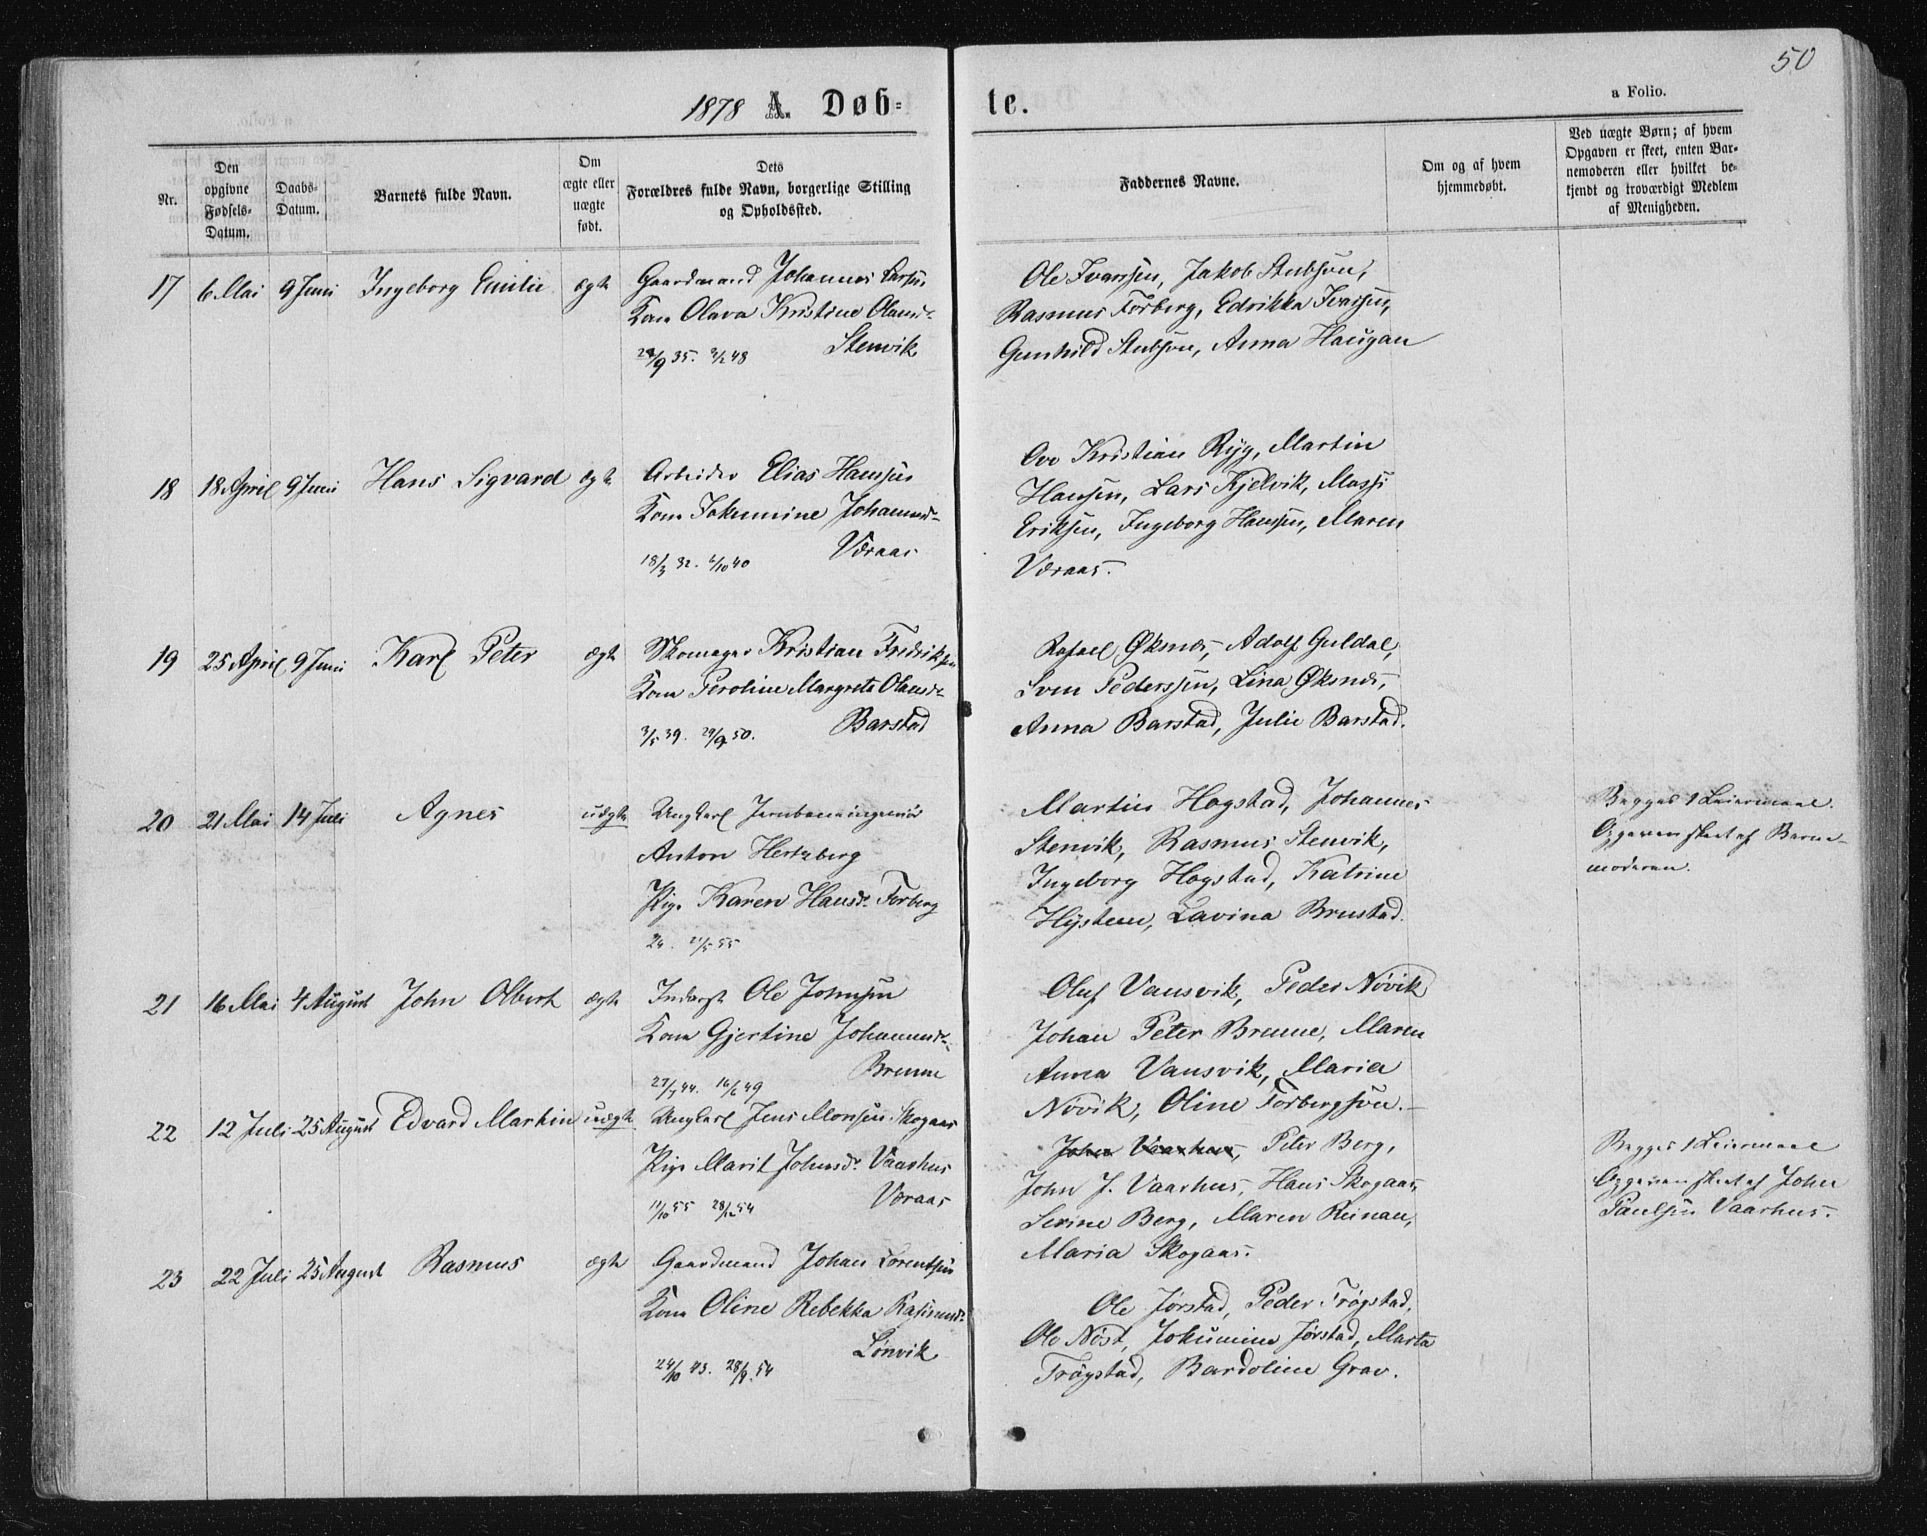 50
1878 A. Døb-te.
a Folio.
Nr.
Den opgivne Fødsels-Datum.
Daabs-Datum.
Barnets fulde Navn.
Om ægte eller uægte født.
Dets Forældres fulde Navn, borgerlige Stilling og Opholdssted.
Faddernes Navne.
Om og af hvem hjemmedøbt.
Ved uægte Børn; af hvem Opgaven er skeet, enten Barnemoderen eller hvilket bekjendt og troværdigt Medlem af Menigheden.
17 6 Mai 9 Juni Ingeborg Emilie ægte
Gaardmand Johannes Larsen
Kone Olava Kristine Olausd.
Stenvik
9 35. 2/2 48
Ole Ivarssen, Jakob Stubsøen,
Rasmus Forberg, Edrikka Ivarssen,
Gunhild Stubsøen, Anna Haugan
18 18 April 9 Juni Hans Sigvard ægte
Arbeider Elias Hanssen
Kone Jokumine Johannesd.
Væraas
18/3 32. /10 40
Ove Kristian Ryg, Martin
Hanssen, Lars Kjelvik, Massi
Erikssen, Ingeborg Hanssen, Maren
Væraas.
19 25 April 9 Juni Karl Peter ægte
Skomager Kristian Fredriksen
Kone Peroline Margrete Olausd.
Barstad
3/5 39. 29/9 50.
Rafael Øksnes, Adolf Guldal,
Sven Pederssen, Lina Øksnes,
Anna Barstad, Julie Barstad.
20 21 Mai 14 Juli Agnes uægte
Ungkarl Jernbaneingeniør
Anton Hertzberg
Pige Karen Hansd. Forberg
24. 21/5 55
Martin Hogstad, Johannes
Stenvik, Rasmus Stenvik,
Ingeborg Hogstad, Katrine
Hysteen, Lavina Brustad.
Begges 1 Leiermaal.
Opgaven skeet af Barne-
moderen.
21 16 Mai 4 August John Albert ægte
Inderst Ole Johnsen
Kone Gjertine Johannesd.
Brenne
27/7 44. 16/6 49
Oluf Vansvik, Peder Nøvik
Johan Peter Brenne, Maren
Anna Vansvik, Maria
Nøvik, Oline Forbergsøen.
22 12 Juli 25 August Edvard Martin uægte
Ungkarl Jens Monsen Skogaas
Pige Marit Johnsd. Vaarhus
Væraas
11/10 55 28/12 54
John Vaarhus, Peter Berg,
John J. Vaarhus, Hans Skogaas,
Serine Berg, Maren Reinan,
Maria Skogaas.
Begges 1 Leiermaal
Opgaven skeet af John
Paulsen Vaarhus.
23 22 Juli 25 August Rasmus ægte
Gaardmand Johan Lorentsen
Kone Oline Rebekka Rasmusd.
Lønvik
24/10 43. 28/9 54
Ole Jørstad, Peder Trøgstad,
Ole Nøst, Jokumine Jørstad, Marta
Trøgstad, Bardoline Grav.